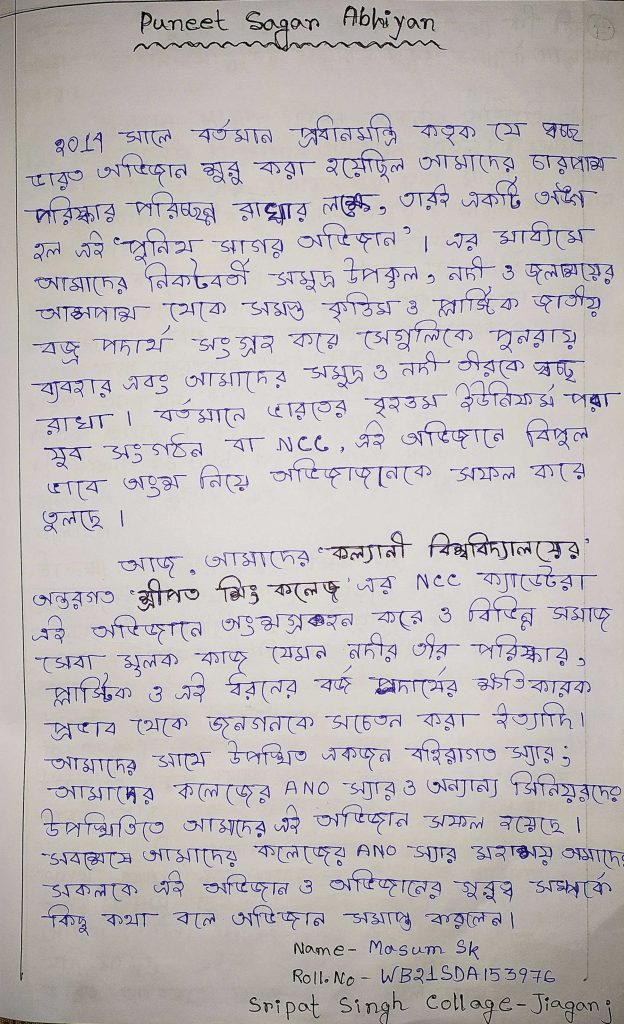 Puneet Sagar Abhiyan
2014 সালে বর্তমান প্রধানমন্ত্রি কতৃক যে স্বচ্ছ
ভারত অভিজান শুরু করা হয়েছিল আমাদের চারপাশ
পরিস্কার পরিচ্ছন্ন রাখার লক্ষে, তারই একটি অঙ্গ
হল এই 'পুনিথ সাগর অভিজান' । এর মাধ্যমে
আমাদের নিকটবর্তী সমুদ্র উপকুল, নদী ও জলাশয়ের
আশপাশ থেকে সমস্ত কৃত্তিম ও প্লাস্টিক জাতীয়
বজ্র পদার্থ সংগ্রহ করে সেগুলিকে পুনরায়
ব্যবহার এবং আমাদের সমুদ্র ও নদী তীরকে স্বচ্ছ
রাখা । বর্তমানে ভারতের বৃহত্তম ইউনিফর্ম পরা
যুব সংগঠন বা NCC, এই অভিজানে বিপুল
ভাবে অংশ নিয়ে অভিজানকে সফল করে
তুলছে ।
আজ, আমাদের 'কল্যানী বিশ্ববিদ্যালয়ের'
অন্তরগত 'শ্রীপত সিং কলেজ' এর NCC ক্যাডেটরা
এই অভিজানে অংশগ্রহন করে ও বিভিন্ন সমাজ
সেবা মুলক কাজ যেমন নদীর তীর পরিস্কার,
প্লাস্টিক ও এই ধরনের বর্জ পদার্থের ক্ষতিকারক
প্রভাব থেকে জনগনকে সচেতন করা ইত্যাদি।
আমাদের সাথে উপস্থিত একজন বহিরাগত স্যার;
আমাদের কলেজের ANO স্যার ও অন্যান্য সিনিয়রদের
উপস্থিতিতে আমাদের এই অভিজান সফল হয়েছে ।
সবশেষে আমাদের কলেজের ANO স্যার মহাশয় আমাদের
সকলকে এই অভিজান ও অভিজানের গুরুত্ব সম্পর্কে
কিছু কথা বলে অভিজান সমাপ্ত করলেন।
Name- Masum Sk
Roll.No - WB21SDA153976
Sripat Singh Collage-Jiaganj